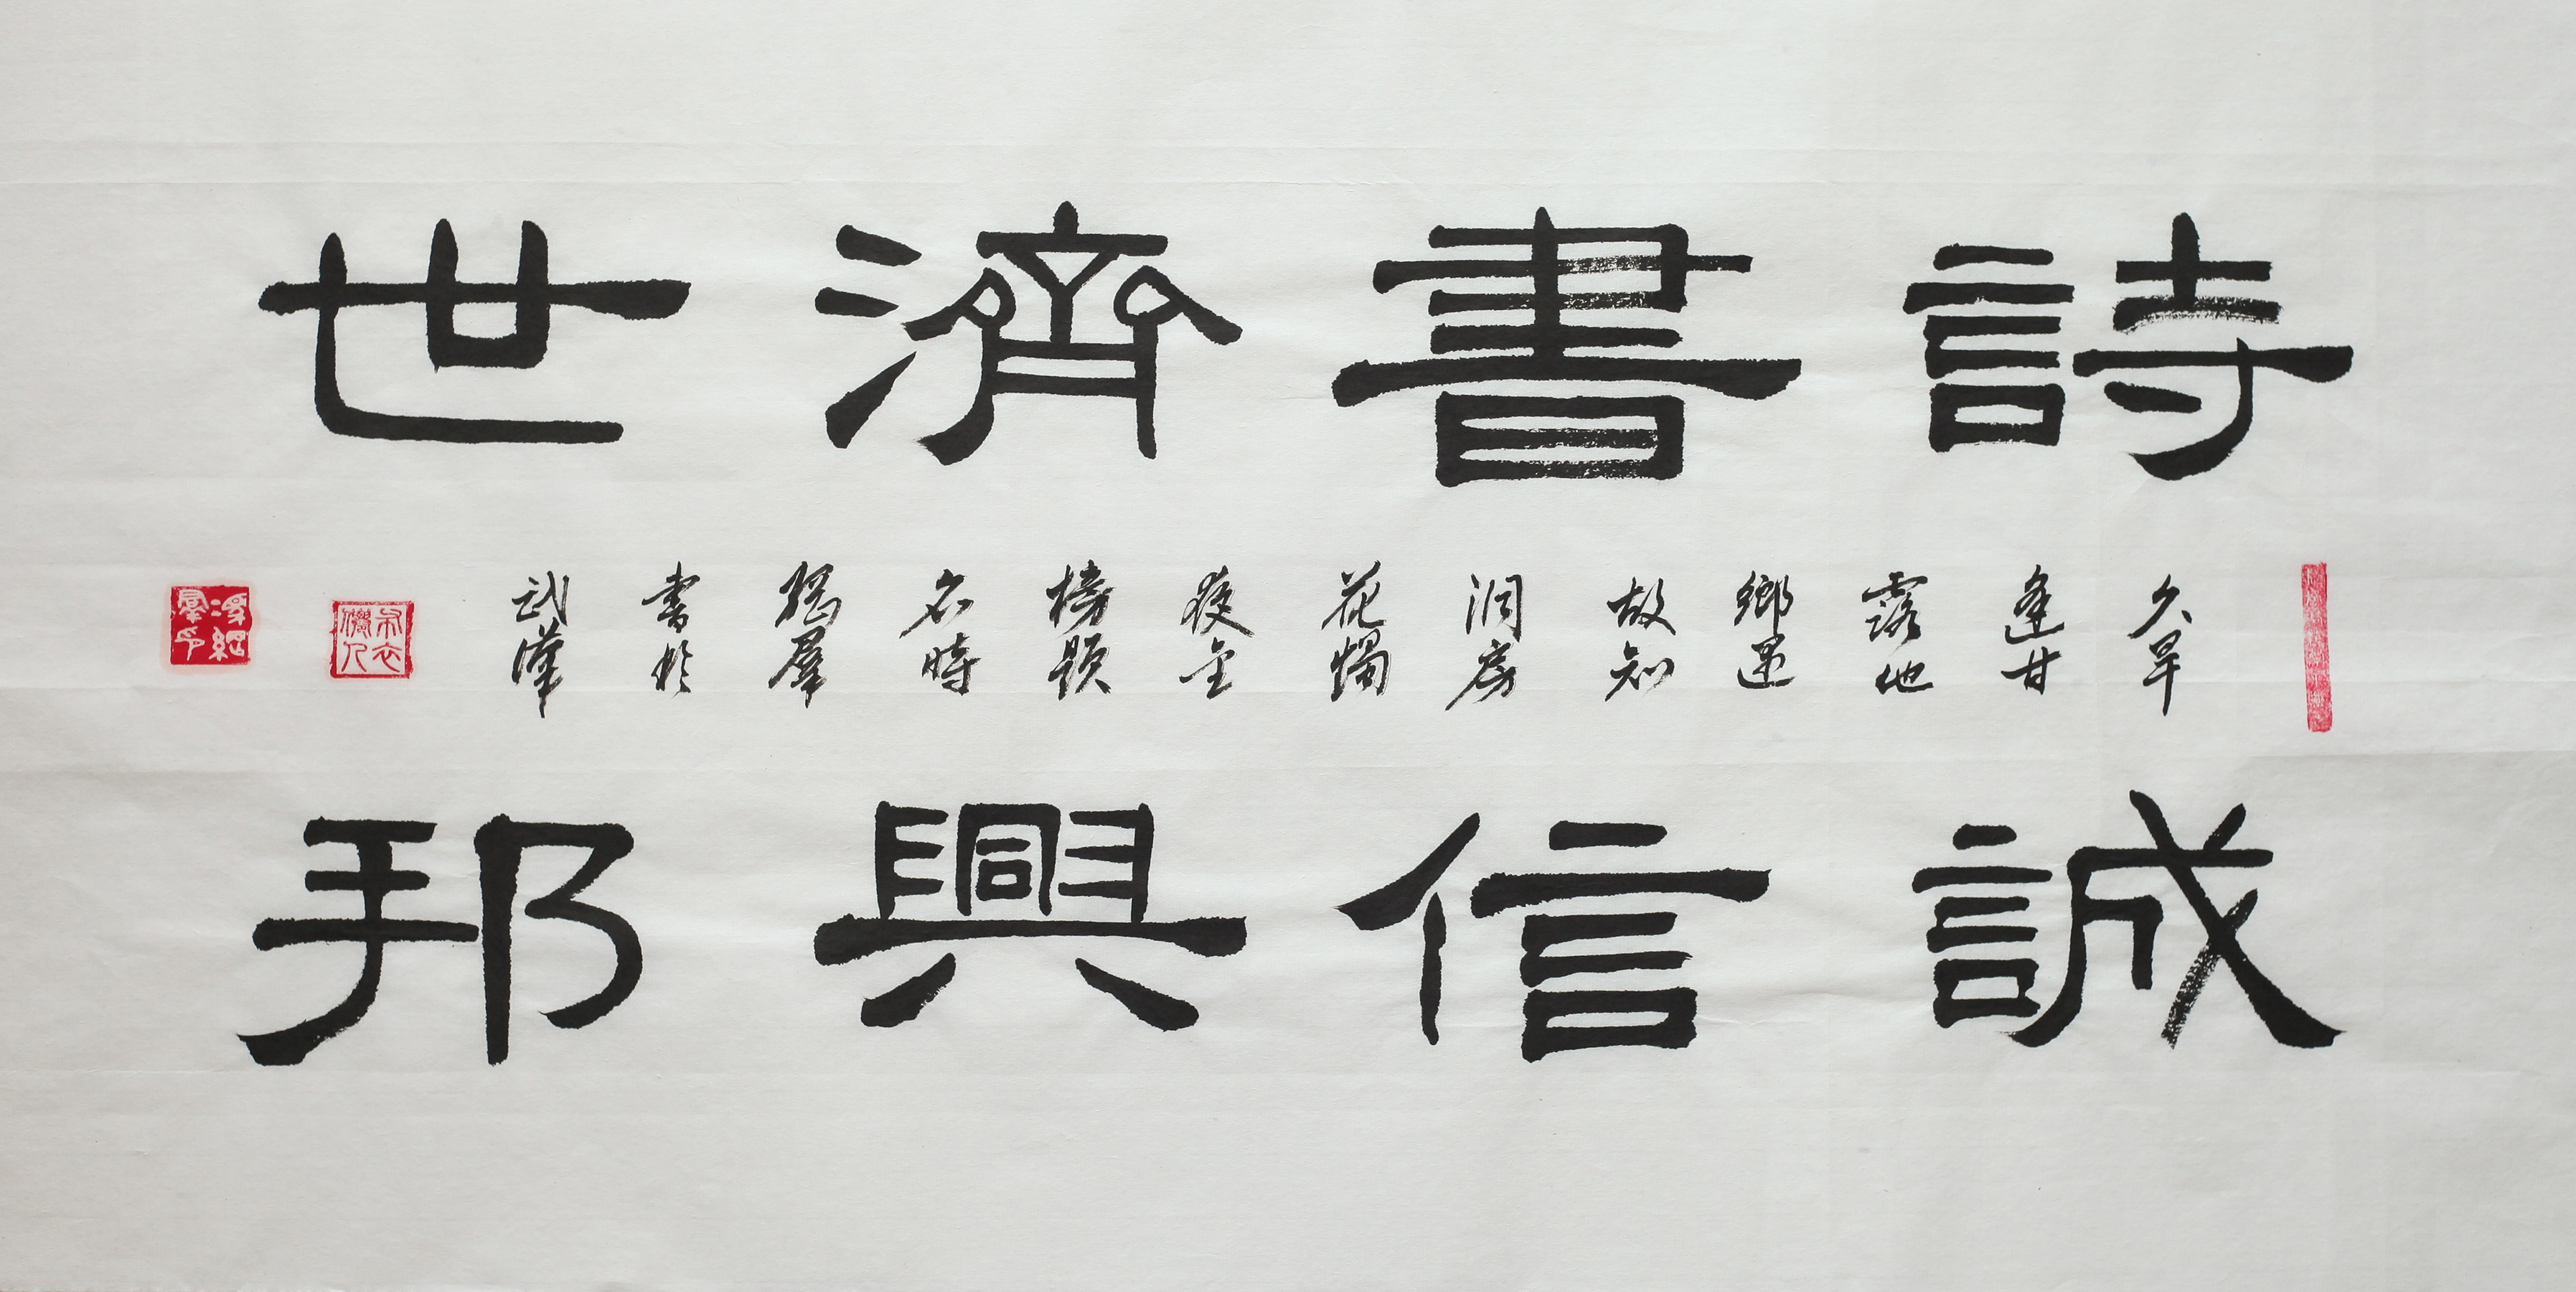 詩書濟世
久旱
逢甘
露他
鄉遇
故知
洞房
花燭
夜金
榜題
名時
羣
書於
武漢
誠信興邦